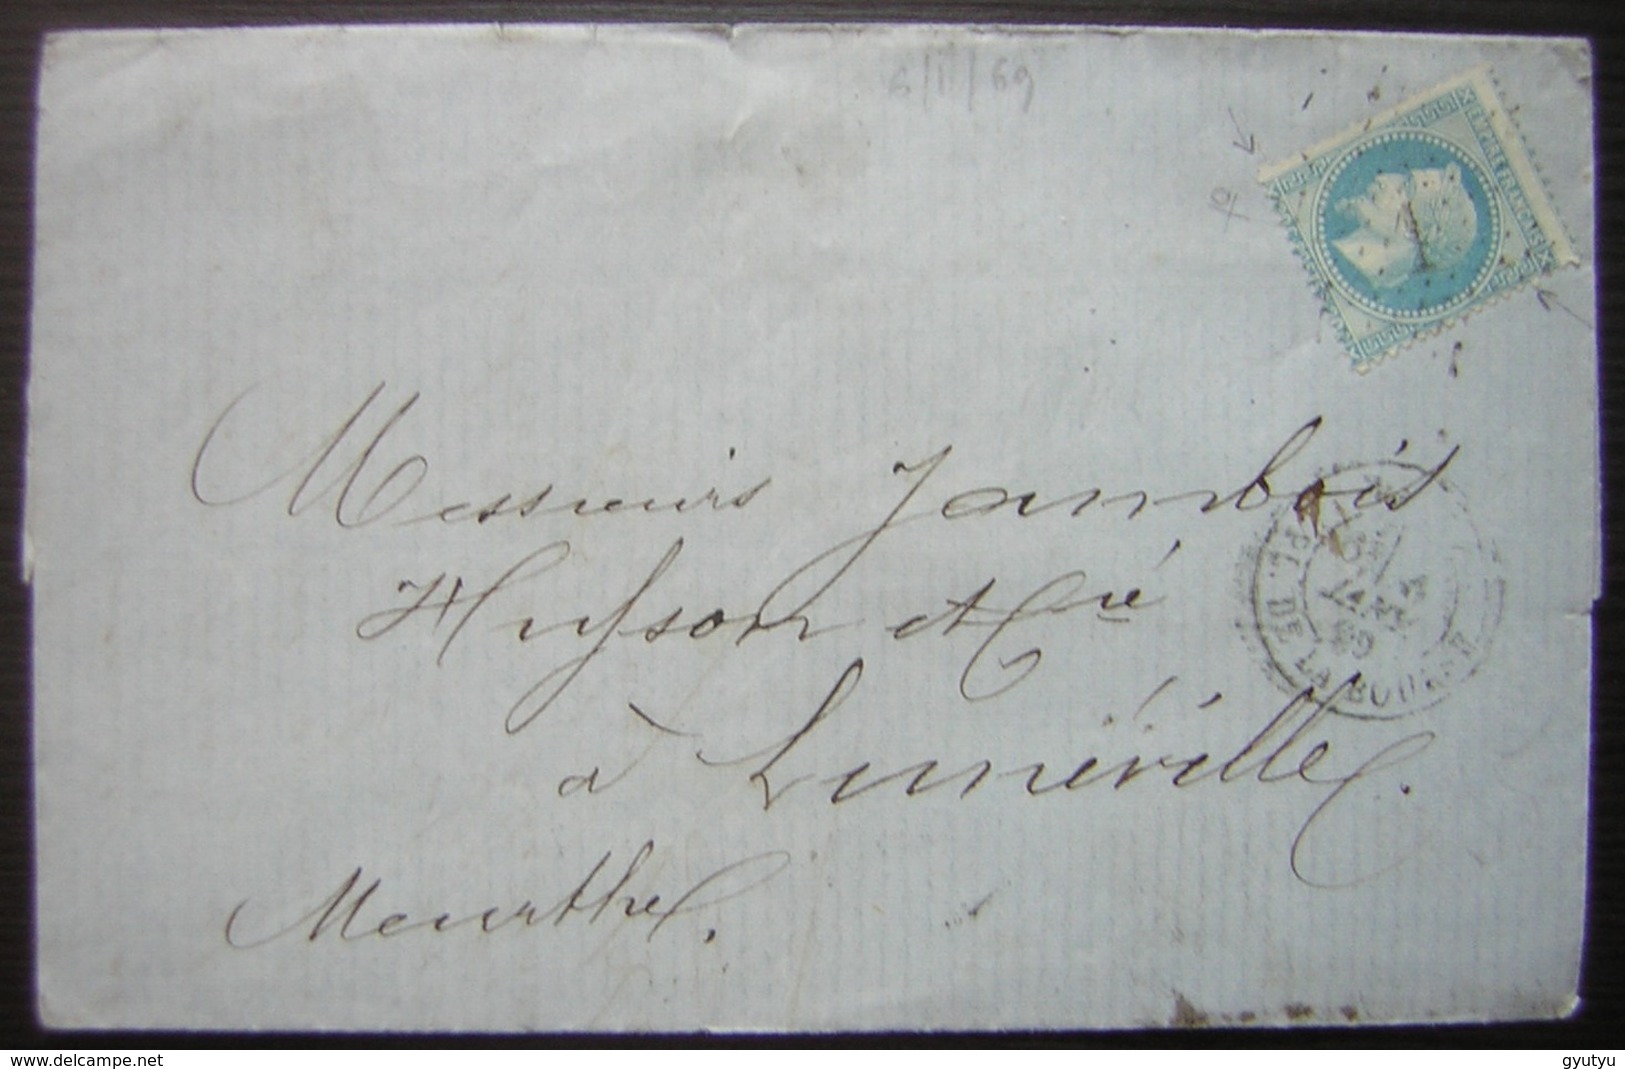 6/1/69
EMPIRE FRANCAIS
1
Messieurs Jambois
Husson et Cie
à Lunéville
Meurthe.
PL. DE LA BOURSE
JANV.
69
www.delcampe.net
gyutyu